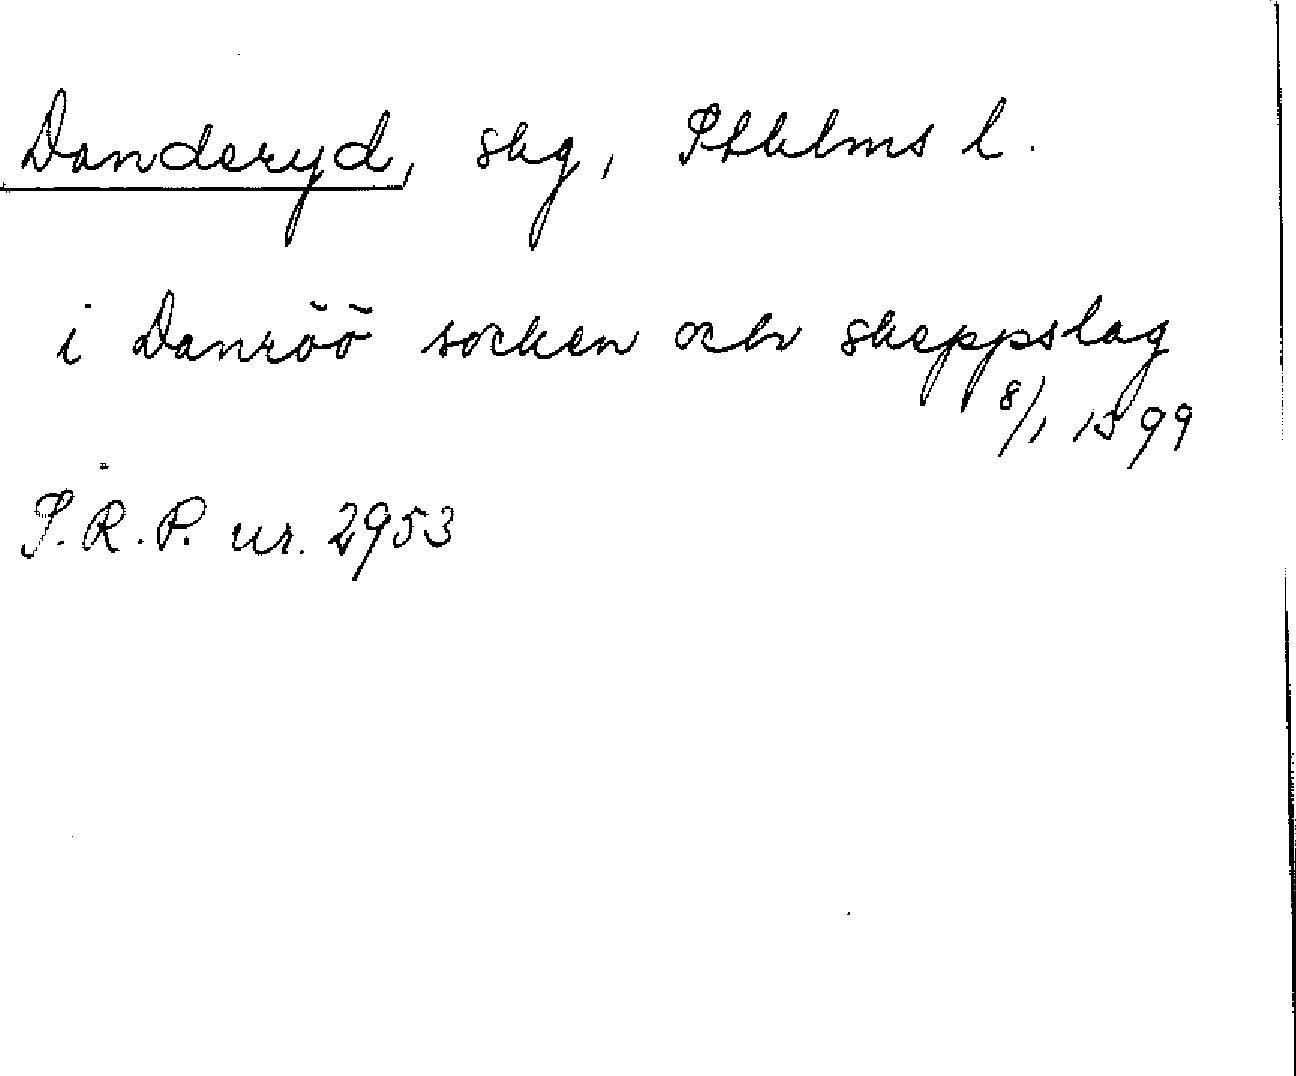 Danderyd, skg, Sthlms l.
i Danröö socken och skeppslag
8/1 1599
S.R.P. nr. 2953